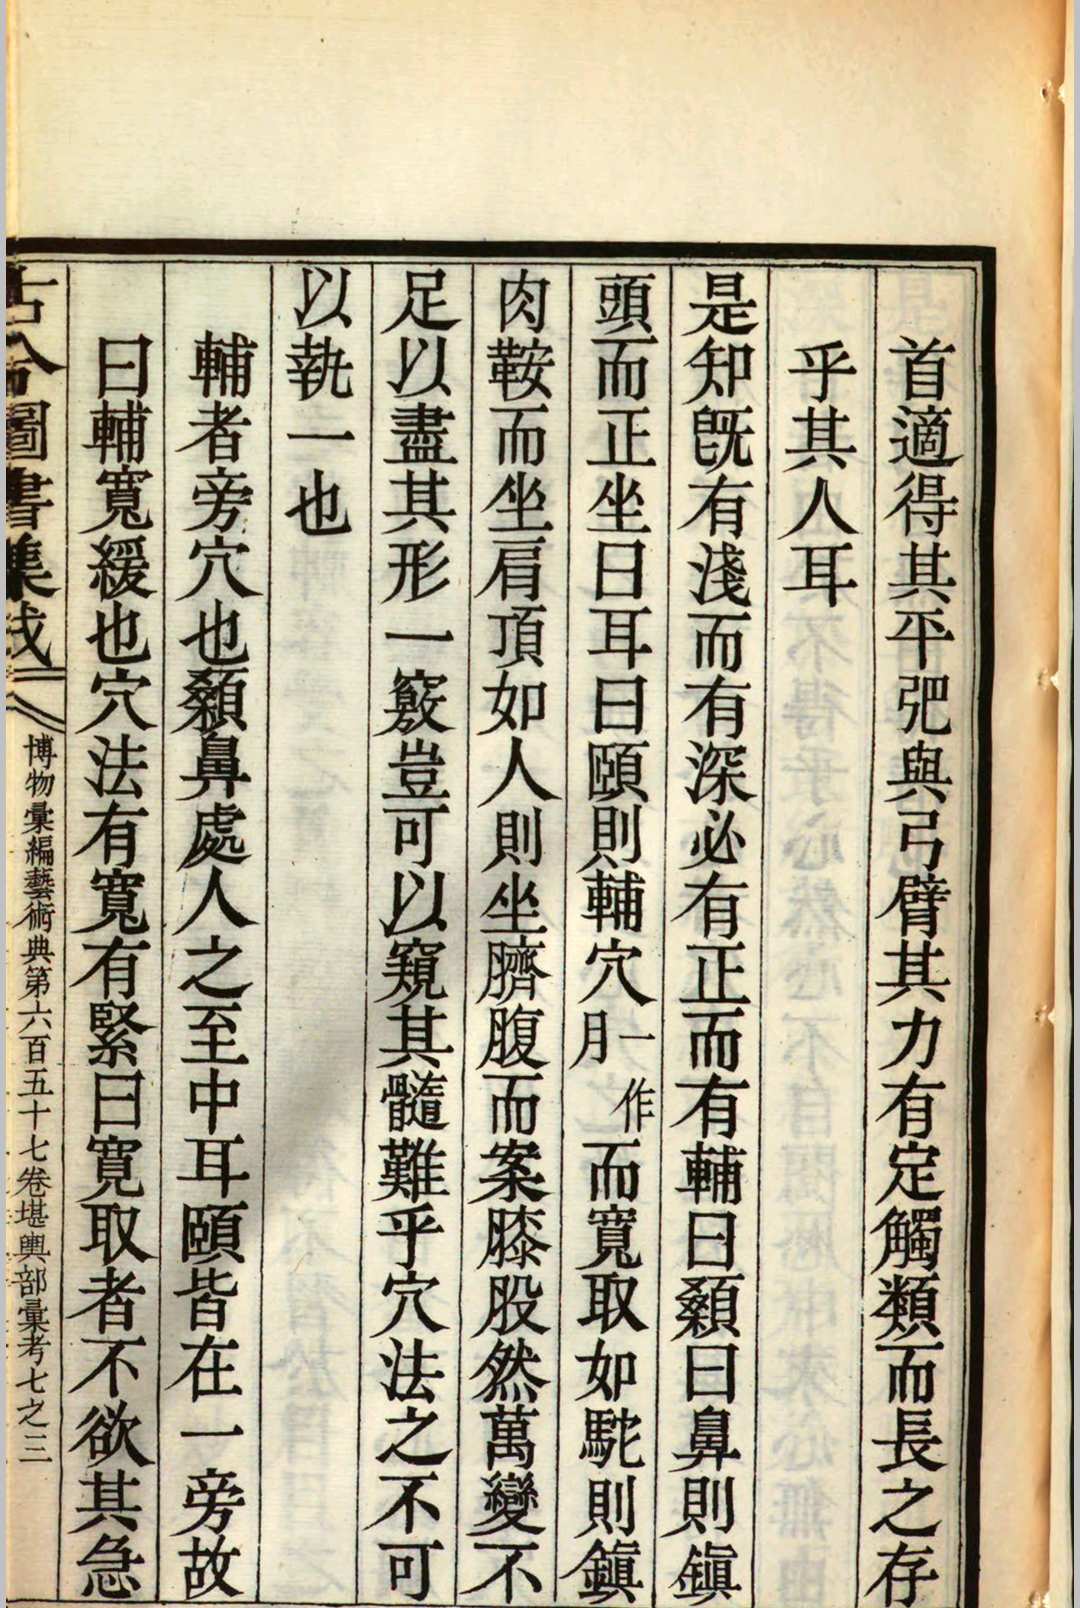 首適得其平弝與弓臂其力有定觸類而長之存
乎其人耳
是知旣有淺而有深必有正而有輔曰顙曰鼻則鎭
頭而正坐曰耳曰頤則輔穴一作月而寬取如駝則鎭
肉鞍而坐肩頂如人則坐臍腹而案膝股然萬變不
足以盡其形一竅豈可以窺其髓難乎穴法之不可
以執一也
輔者旁穴也顙鼻處人之至中耳頤皆在一旁故
曰輔寬緩也穴法有寬有緊曰寬取者不欲其急
古今圖書集成
博物彙編藝術典第六百五十七卷堪輿部彙考七之三